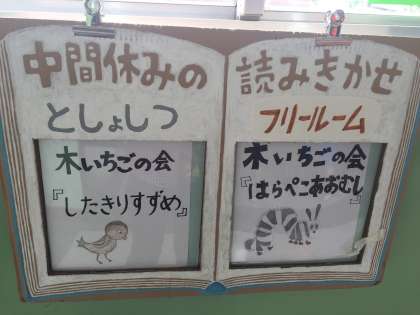 中間休みの
としょしつ
木いちごの会
『したきりすずめ』
読みきかせ
フリールーム
木いちごの会
『はらぺこあおむし』